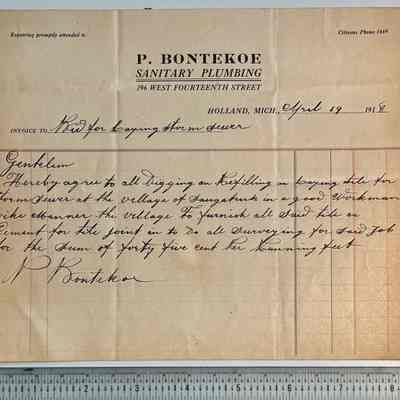 Repairing promptly attended to
Citizens Phone 1469
P. BONTEKOE
SANITARY PLUMBING
196 WEST FOURTEENTH STREET
HOLLAND, MICH., April 19 1918
INVOICE TO Bid for Laying Storm Sewer
Gentelim
I Hereby agree to all Digging an Refilling an Laying tile for
Storm Sewer at the village of Saugatuck in a good Workman
like Manner the village To furnish all Said tile an
Cement for tile joint an to Do all Surveying for Said Job
for the Sum of forty five cent Per Running feet
P Bontekoe
1 2 3 4 5 6 7 8